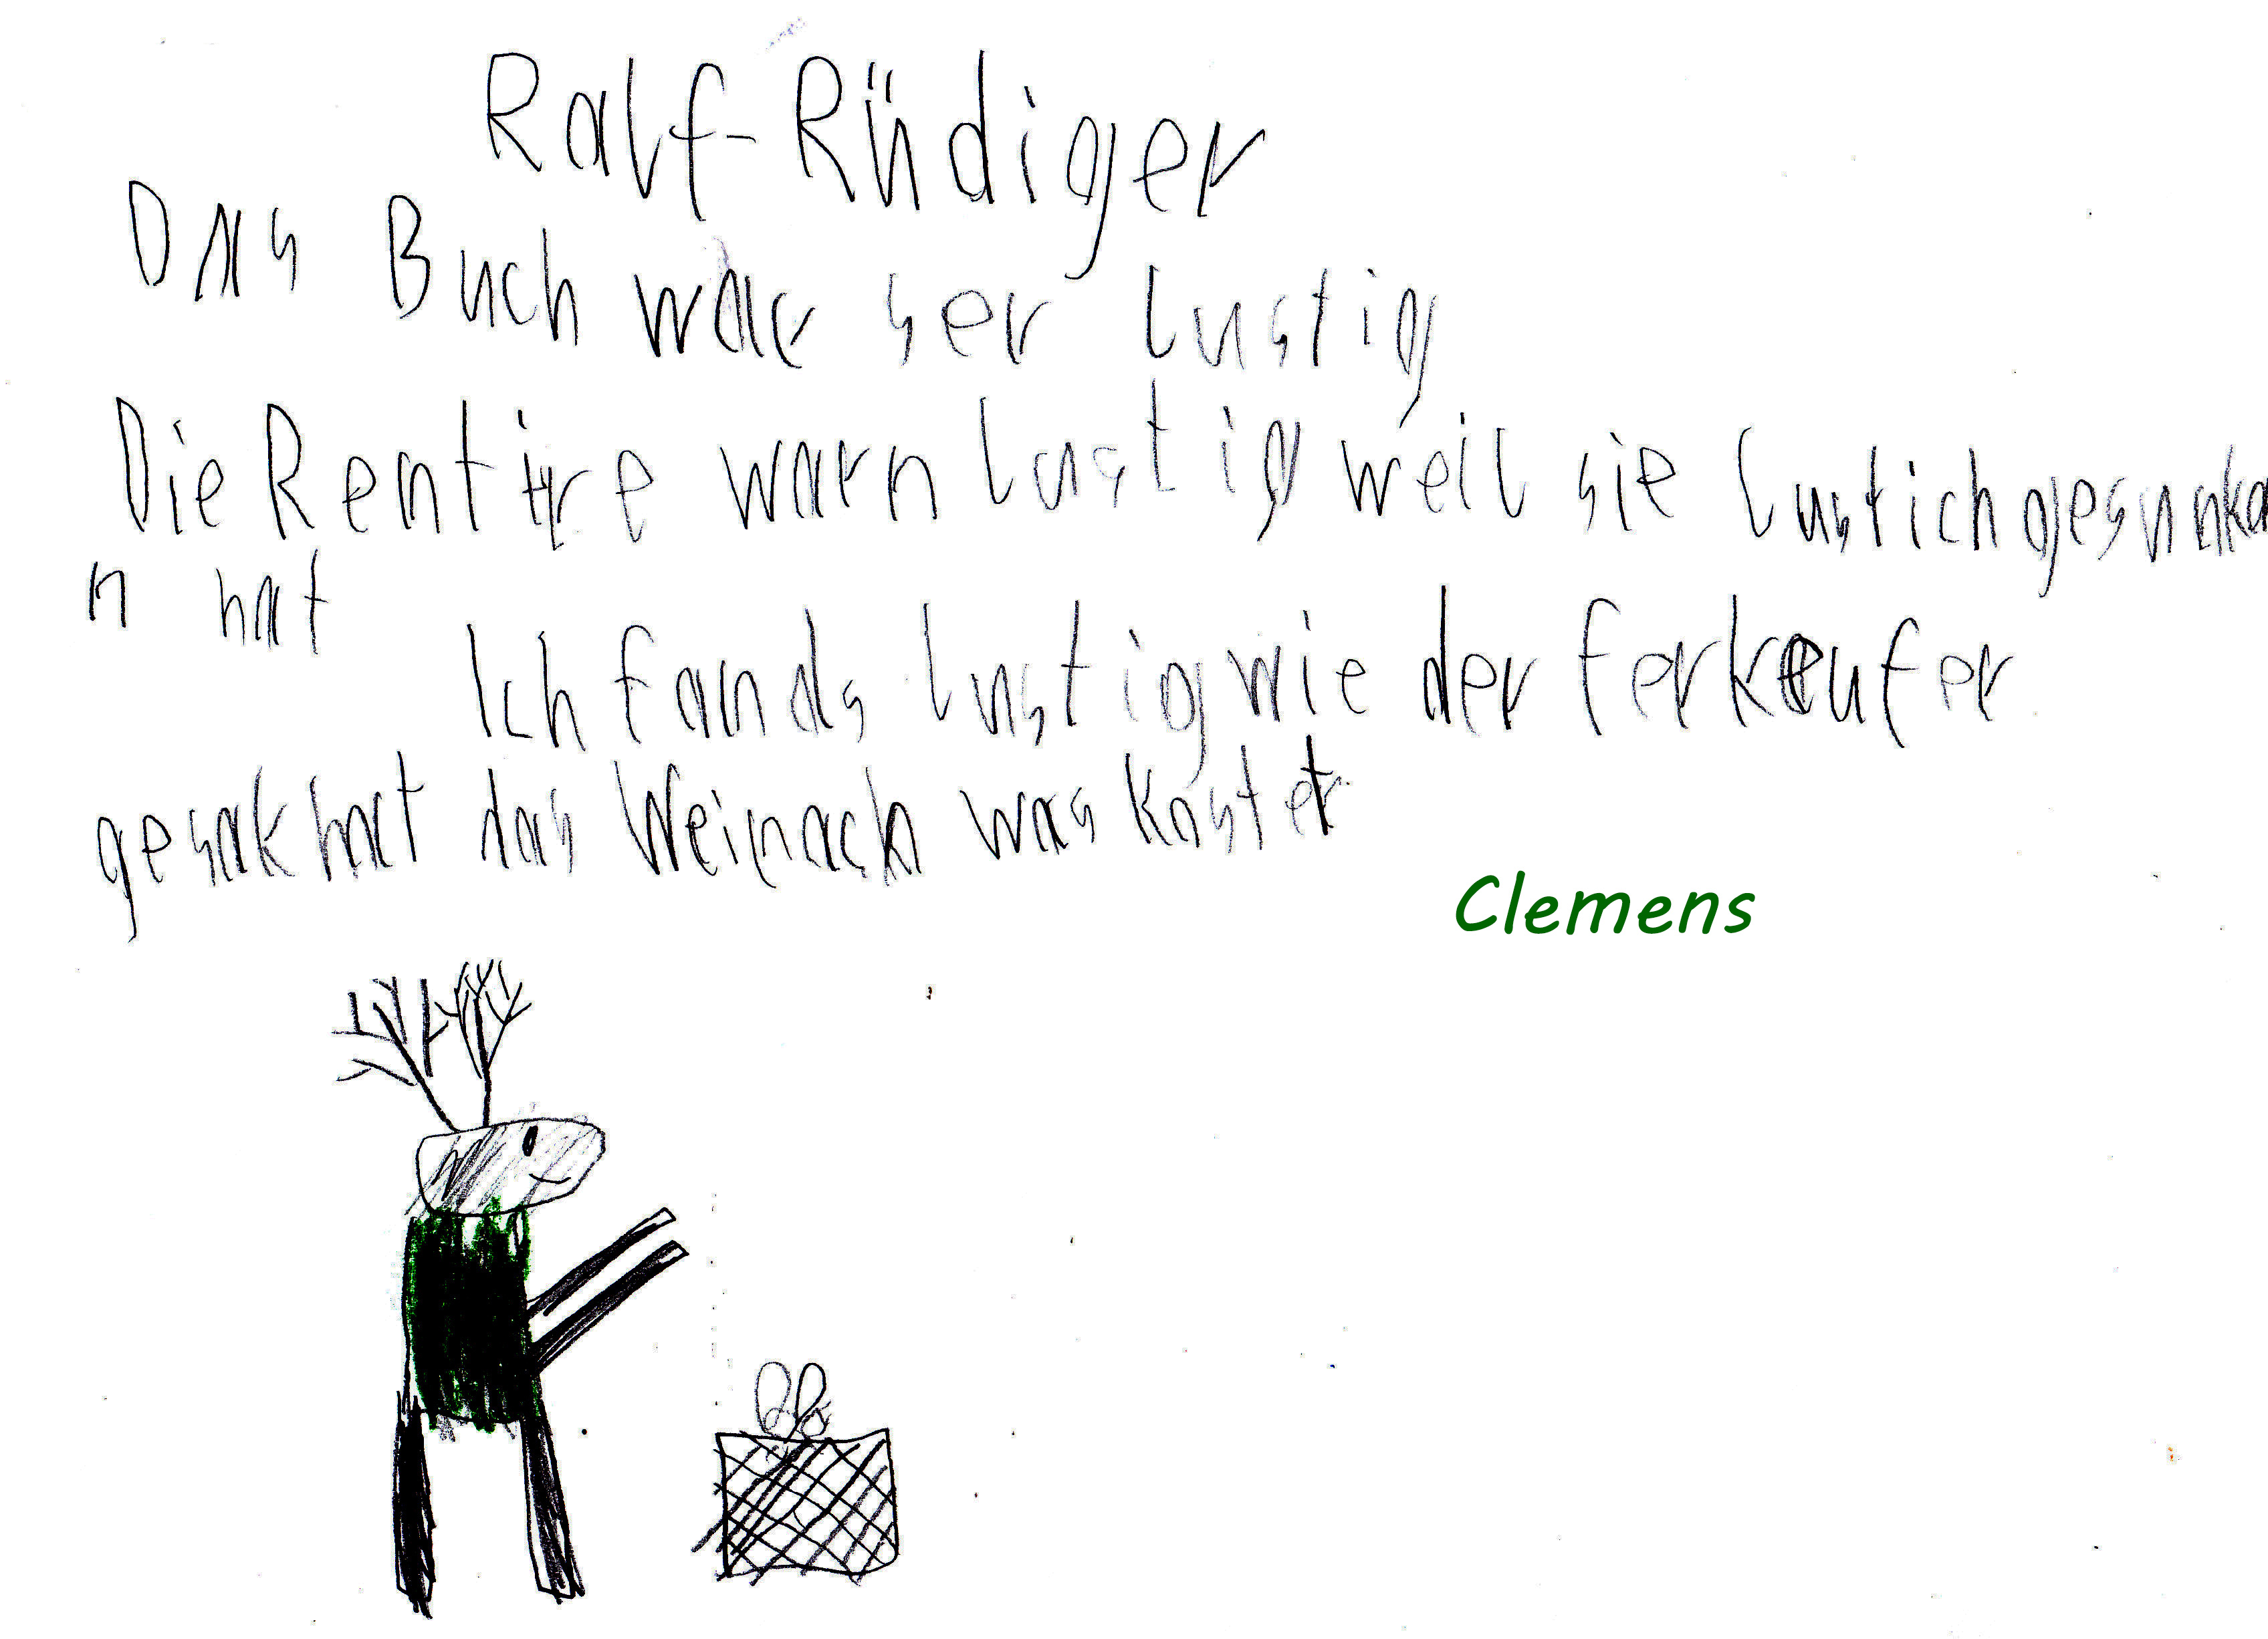 Ralf-Rüdiger
Das Buch war ser lustig
Die Rentire warn lustig weil sie lustich gesunka
n hat
Ich fands lustig wie der ferkeufer
gesak hat das Weinach was kostet
Clemens